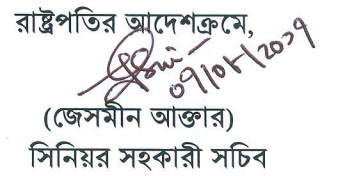 রাষ্ট্রপতির আদেশক্রমে,
(জেসমীন আক্তার)
সিনিয়র সহকারী সচিব